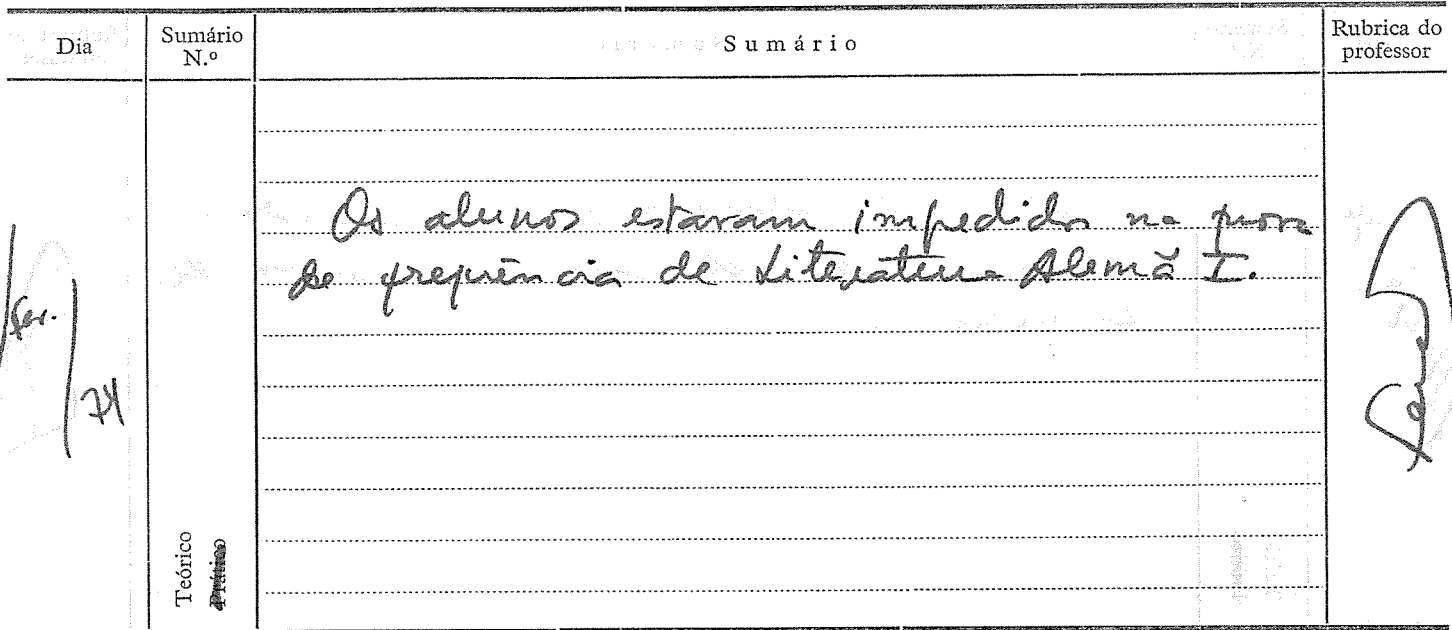 Dia
Sumário N.º
Sumário
Rubrica do professor
Os alunos estavam impedidos na prova
de frequência de Literatura Alemã I.
Fev.
74
Teórico
Prático